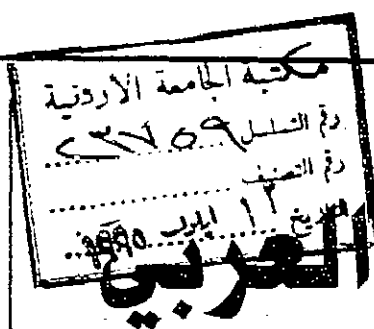 مكتبة الجامعة الأردنية
رقم التسلسل
رقم التصنيف
التاريخ ١٢ ايلول ١٩٩٥
العربي